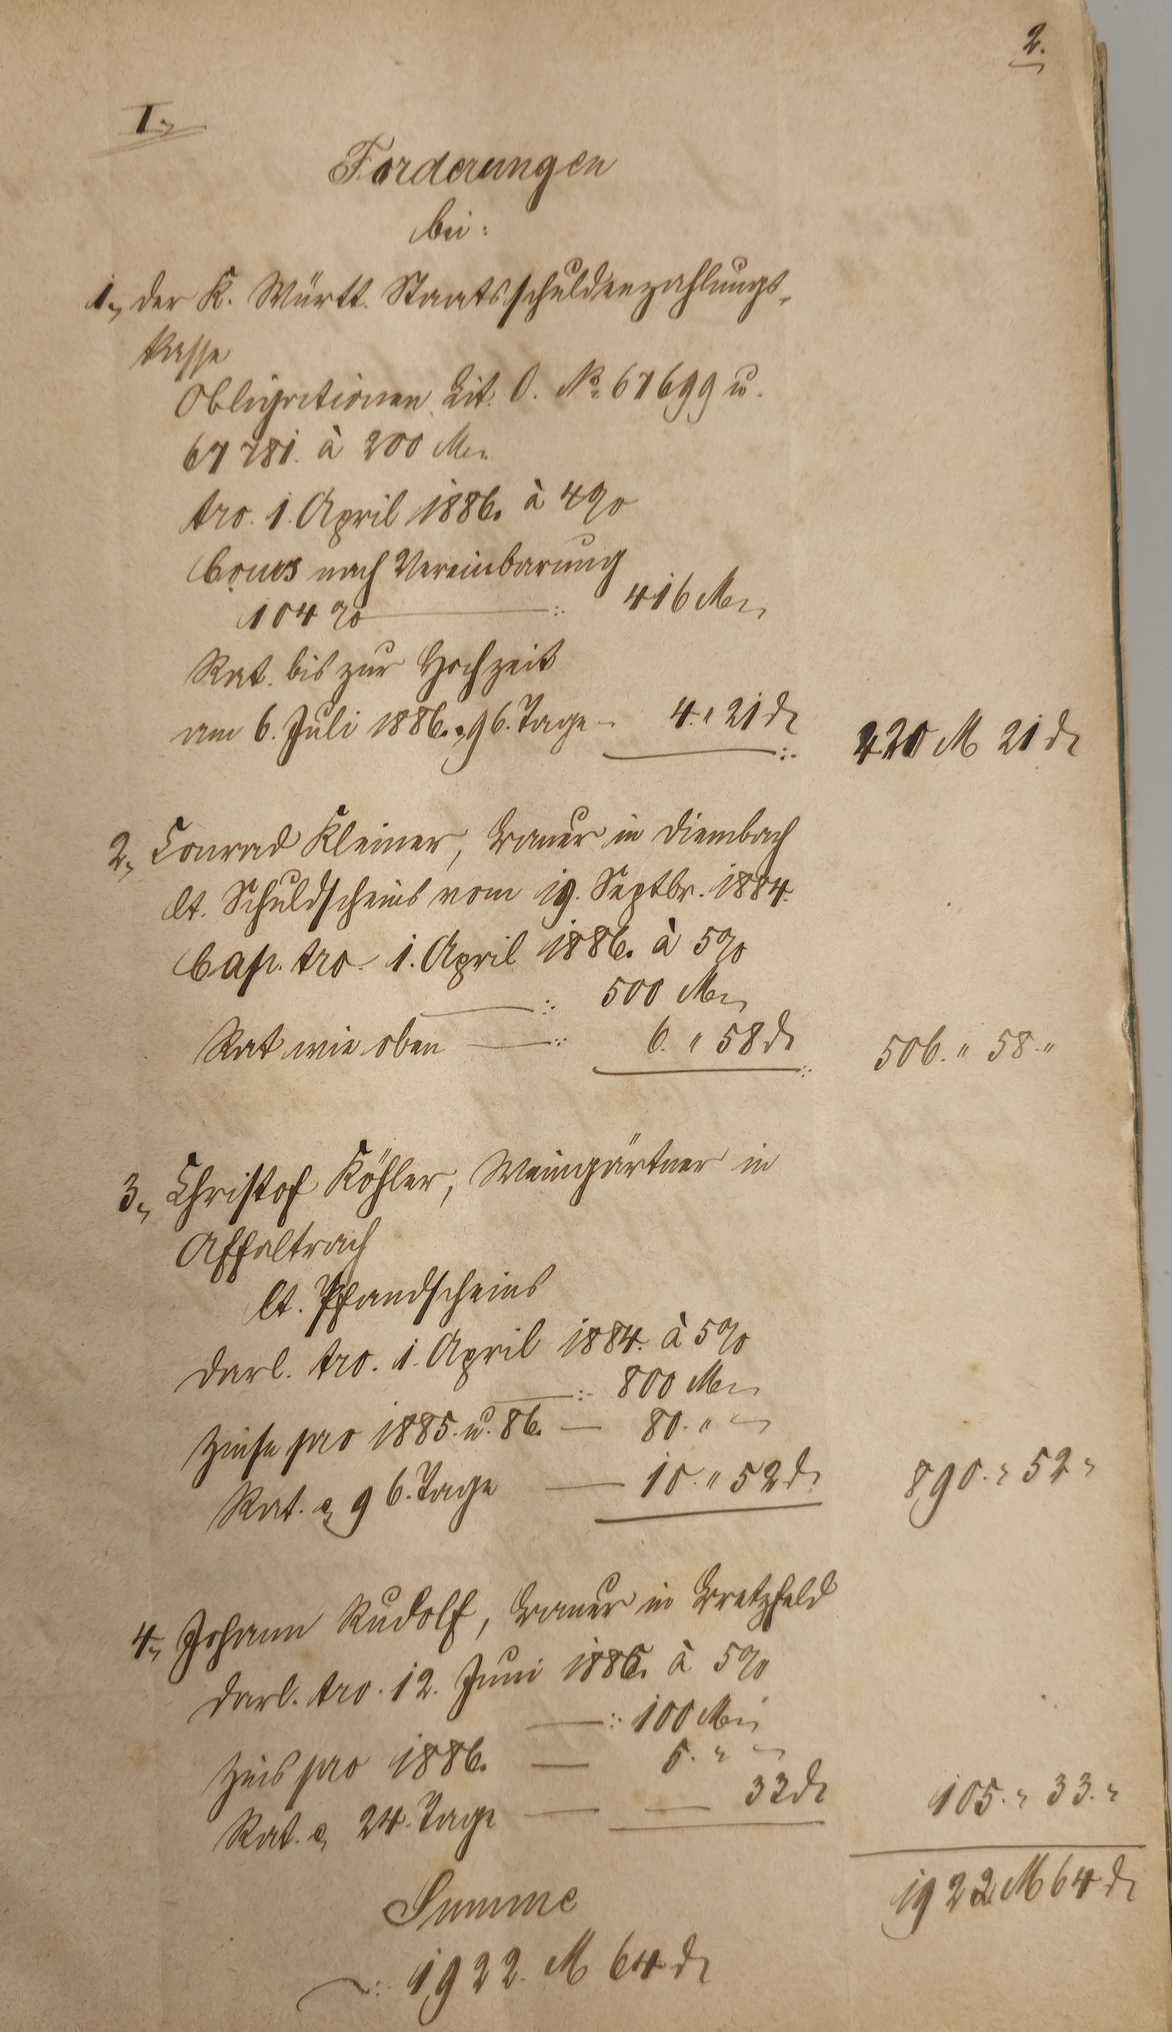 2.
I.,
Forderungen
bei:
1., der K. Württ. Staatsschuldenzahlungs-
kasse
Obligationen Lit. O. No. 67699 u.
67781. à 200 M.,
tro. 1. April 1886. à 4%
Cours nach Vereinbarung
104% —: 416 M.,
Rat. bis zur Hochzeit
am 6. Juli 1886. a, 96. Tage — 4. „ 21 d 420 M 21 d
2., Conrad Kleiner, Bauer in Dimbach
lt. Schuldscheins vom 19. Septbr. 1884.
Cap. tro. 1. April 1886. à 5%
—: 500 M.,
Rat wie oben —: 6. „ 58 d 506. „ 58. „
3., Christof Köhler, Weingärtner in
Affaltrach
lt. Pfandscheins
Darl. tro. 1. April 1884. à 5%
—: 800 M.,
Zinse pro 1885. u. 86. — 80. „ —
Rat. a, 96. Tage — 10. „ 52 d. 890. „ 52 „
4., Johann Rudolf, Bauer in Bretzfeld
Darl. tro. 12. Juni 1885. à 5%
—: 100 M.,
Zins pro 1886. — 5. „ —
Rat. a, 24. Tage — — 33 d 105. „ 33. „
1922 M 64 d
Summe
—: 1922. M 64 d